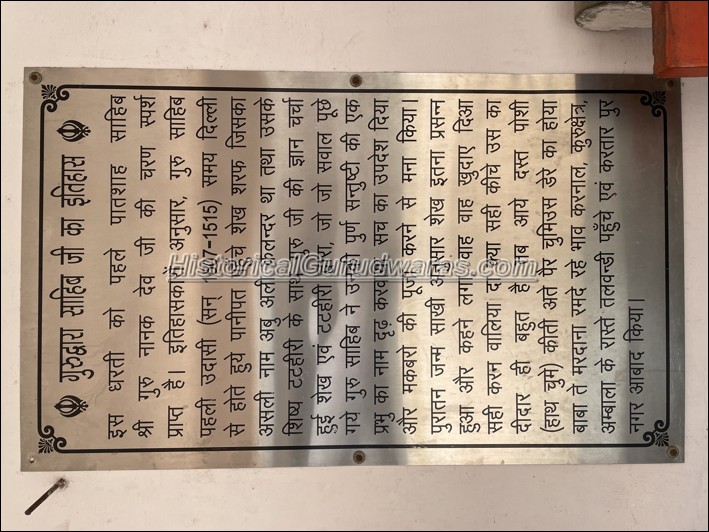 गुरुद्वारा साहिब जी का इतिहास
इस धरती को पहले पातशाह साहिब
श्री गुरु नानक देव जी की चरण स्पर्श
प्राप्त है। इतिहासकारों अनुसार, गुरु साहिब
पहली उदासी (सन् 1507-1515) समय दिल्ली
से होते हुये पानीपत पहुँचे शेख शरफ जिसका
असली नाम अबु अली कलन्दर था तथा उसके
शिष्य टटहीरी के साथ गुरु जी की ज्ञान चर्चा
हुई शेख एवं टटहीरी द्वारा, जो जो सवाल पूछे
गये गुरु साहिब ने उनकी पूर्ण सन्तुष्टी की एक
प्रभु का नाम दृढ़ करवाया सच का उपदेश दिया
और मकबरो की पूजा करने से मना किया।
पुरातन जन्म साखी अनुसार शेख इतना प्रसन्न
हुआ और कहने लगा वाह वाह खुदाए दिआ
सही करन वालिया दरिल्या सही कीचे उस का
दीदार ही बहुत है तब आये दस्त पोशी
(हाथ चुमे) कीती अते पैर चुमिउस डेरे का होया
बाबा ते मरदाना रमदे रहे भाव करनाल, कुरुक्षेत्र,
अम्बाला के रास्ते तलवन्डी पहुँचे एवं करतार पुर
नगर आबाद किया।
HistoricalGurudwaras.com